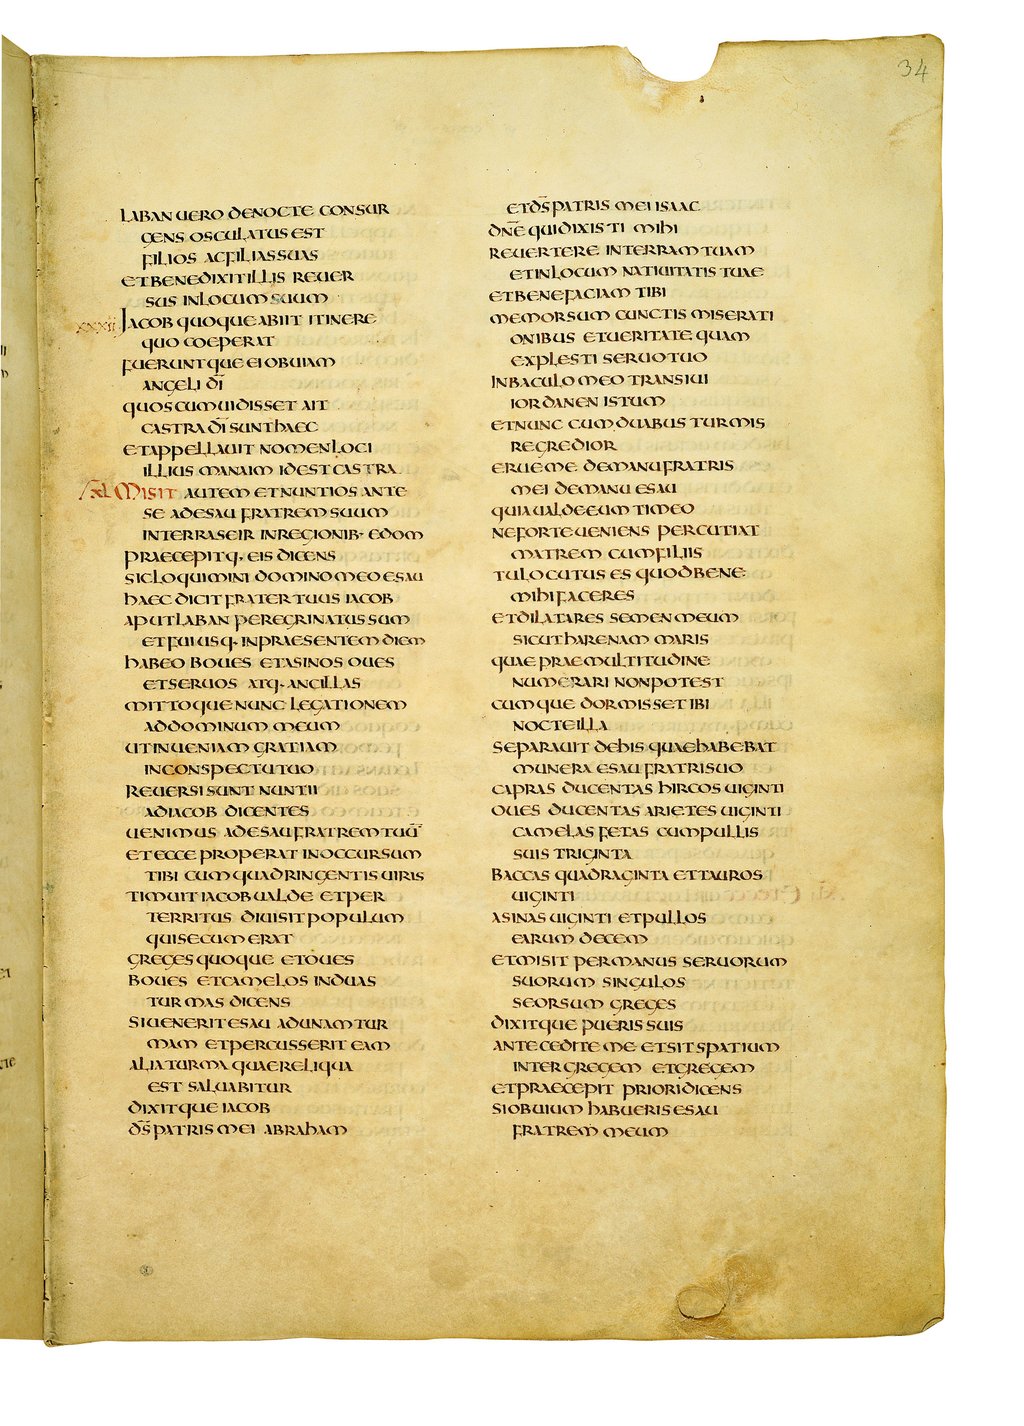 34
LABAN UERO DENOCTE CONSUR
GENS OSCULATUS EST
FILIOS ACFILIAS SUAS
ETBENEDIXIT ILLIS REUER
SUS INLOCUM SUUM
XXXII IACOB QUOQUE ABIIT ITINERE
QUO COEPERAT
FUERUNTQUE EI OBUIAM
ANGELI DĪ
QUOS CUM UIDISSET AIT
CASTRA DĪ SUNT HAEC
ETAPPELLAUIT NOMEN LOCI
ILLIUS MANAIM IDEST CASTRA
MISIT AUTEM ET NUNTIOS ANTE
SE ADESAU FRATREM SUUM
INTERRASEIR INREGIONIB· EDOM
PRAECEPITQ· EIS DICENS
SIC LOQUIMINI DOMINO MEO ESAU
HAEC DICIT FRATER TUUS IACOB
APUT LABAN PEREGRINATUS SUM
ET FUI USQ· INPRAESENTEM DIEM
HABEO BOUES ET ASINOS OUES
ET SERUOS ATQ· ANCILLAS
MITTOQUE NUNC LEGATIONEM
AD DOMINUM MEUM
UT INUENIAM GRATIAM
INCONSPECTU TUO
REUERSI SUNT NUNTII
AD IACOB DICENTES
UENIMUS AD ESAU FRATREM TUŪ
ET ECCE PROPERAT INOCCURSUM
TIBI CUM QUADRINGENTIS UIRIS
TIMUIT IACOB UALDE ET PER
TERRITUS DIUISIT POPULUM
QUI SECUM ERAT
GREGES QUOQUE ET OUES
BOUES ET CAMELOS IN DUAS
TURMAS DICENS
SI UENERIT ESAU AD UNAM TUR
MAM ET PERCUSSERIT EAM
ALIA TURMA QUAE RELIQUA
EST SALUABITUR
DIXITQUE IACOB
DS̄ PATRIS MEI ABRAHAM
ET DS̄ PATRIS MEI ISAAC
DN̄E QUI DIXISTI MIHI
REUERTERE INTERRAM TUAM
ET INLOCUM NATIUITATIS TUAE
ET BENEFACIAM TIBI
MEMOR SUM CUNCTIS MISERATI
ONIBUS ET UERITATE QUAM
EXPLESTI SERUO TUO
IN BACULO MEO TRANSIUI
IORDANEN ISTUM
ET NUNC CUM DUABUS TURMIS
REGREDIOR
ERUE ME DE MANU FRATRIS
MEI DE MANU ESAU
QUIA UALDE EUM TIMEO
NE FORTE UENIENS PERCUTIAT
MATREM CUM FILIIS
TU LOCUTUS ES QUOD BENE
MIHI FACERES
ET DILATARES SEMEN MEUM
SICUT HARENAM MARIS
QUAE PRAE MULTITUDINE
NUMERARI NON POTEST
CUMQUE DORMISSET IBI
NOCTE ILLA
SEPARAUIT DE HIS QUAE HABEBAT
MUNERA ESAU FRATRI SUO
CAPRAS DUCENTAS HIRCOS UIGINTI
OUES DUCENTAS ARIETES UIGINTI
CAMELAS FETAS CUM PULLIS
SUIS TRIGINTA
BACCAS QUADRAGINTA ET TAUROS
UIGINTI
ASINAS UIGINTI ET PULLOS
EARUM DECEM
ET MISIT PER MANUS SERUORUM
SUORUM SINGULOS
SEORSUM GREGES
DIXITQUE PUERIS SUIS
ANTECEDITE ME ET SIT SPATIUM
INTER GREGEM ET GREGEM
ET PRAECEPIT PRIORI DICENS
SI OBUIUM HABUERIS ESAU
FRATREM MEUM